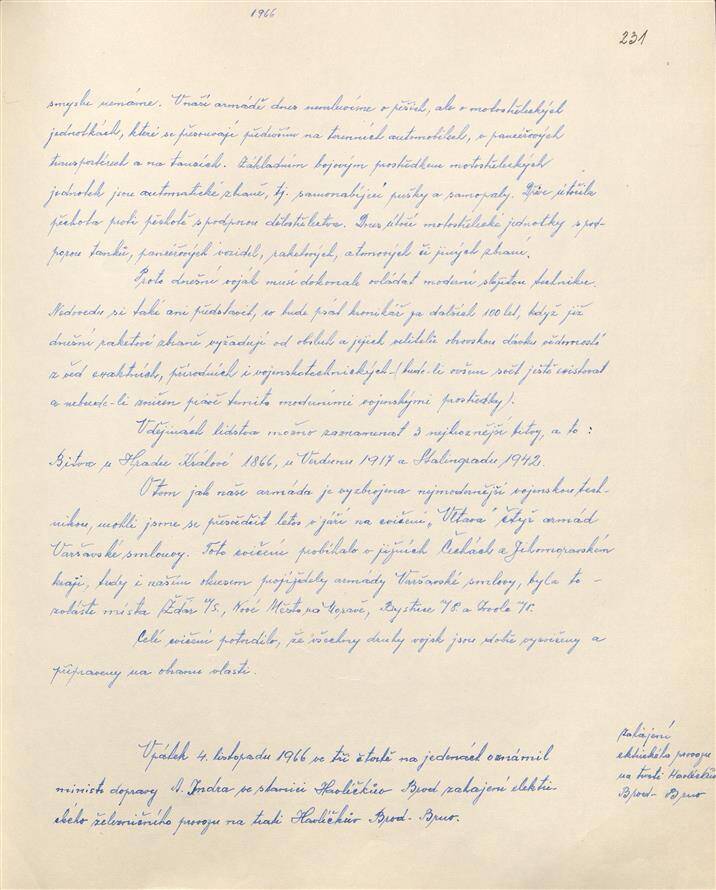 1966
231
smyslu nemáme. V naší armádě dnes nemluvíme o pěších, ale o motostřeleckých
jednotkách, které se přesouvají především na terenních automobilech, v pancéřových
transportérech a na tancích. Základním bojovým prostředkem motostřeleckých
jednotek jsou automatické zbraně, tj. samonabíjecí pušky a samopaly. Dříve útočila
pěchota proti pěchotě s podporou dělostřelectva. Dnes útočí motostřelecké jednotky s pod-
porou tanků, pancéřových vozidel, raketových, atomových či jiných zbraní.
Proto dnešní voják musí dokonale ovládat moderní složitou techniku.
Nedovedu si také ani představit, co bude psát kronikář za dalších 100 let, když již
dnešní raketové zbraně vyžadují od obsluh a jejich velitelů obrovskou dávku vědomostí
z věd exaktních, přírodních i vojenskotechnických (bude-li ovšem svět ještě existovat
a nebude-li zničen právě temito moderními vojenskými prostředky).
V dějinách lidstva možno zaznamenat 3 nejhroznější bitvy, a to :
Bitva u Hradce Králové 1866, u Verdunu 1917 a Stalingradu 1942.
O tom jak naše armáda je vyzbrojena nejmodernější vojenskou tech-
nikou, mohli jsme se přesvědčit letos v září na cvičení „Vltava" čtyř armád
Varšavské smlouvy. Toto cvičení probíhalo v jižních Čechách a Jihomoravském
kraji, tudy i našim okresem projížděly armády Varšavské smlouvy, byla to
zvláště města Žďár n/S., Nové Město na Moravě, Bystřice n/P. a
Celé cvičení potvrdilo, že všechny druhy vojsk jsou dobře vycvičeny a
připraveny na obranu vlasti.
V pátek 4. listopadu 1966 ve tři čtvrtě na jedenáct oznámil
ministr dopravy A. Indra ve stanici Havlíčkův Brod zahájení elektri-
ckého železničního provozu na trati Havlíčkův Brod - Brno.
Zahájení
elektrického provozu
na trati Havlíčkův
Brod - Brno